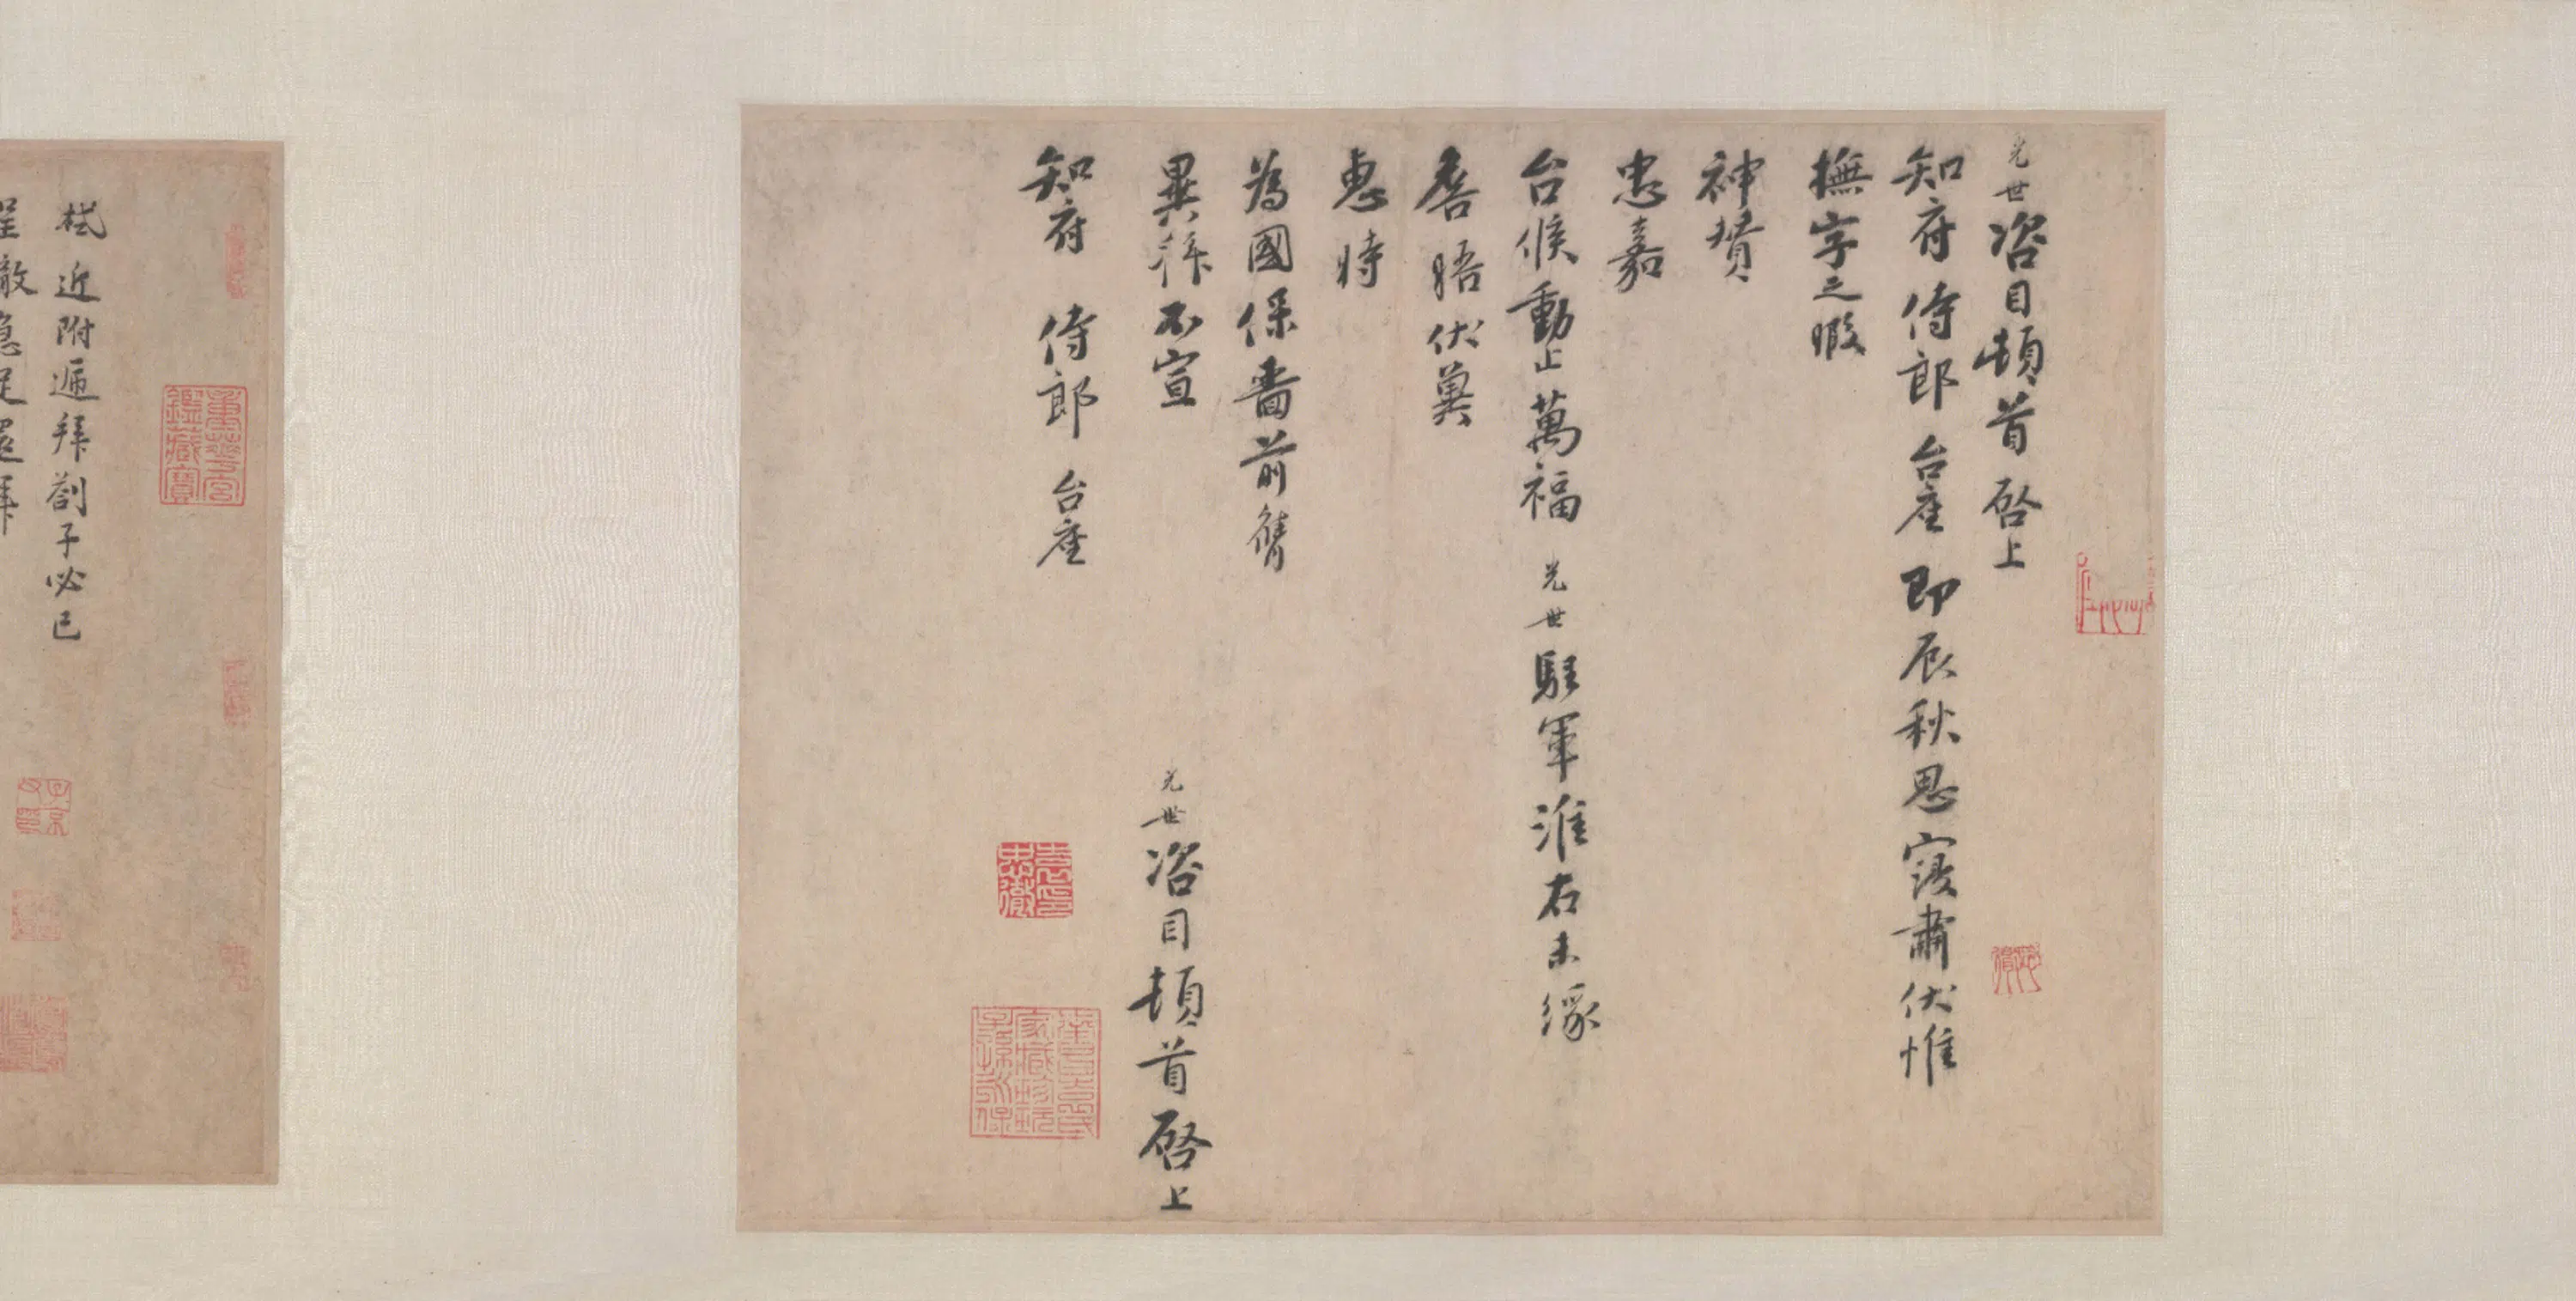 光世咨目頓首啓上
知府侍郎台座即辰秋思寖肅伏惟
撫字之暇
神賛
忠嘉
台候動止萬福光世駐軍淮右未緣
晤伏冀
惠時
為國保嗇前膺
異拜不宣
光世咨目頓首啓上
知府侍郎台座
栻近附遞拜劄子必已